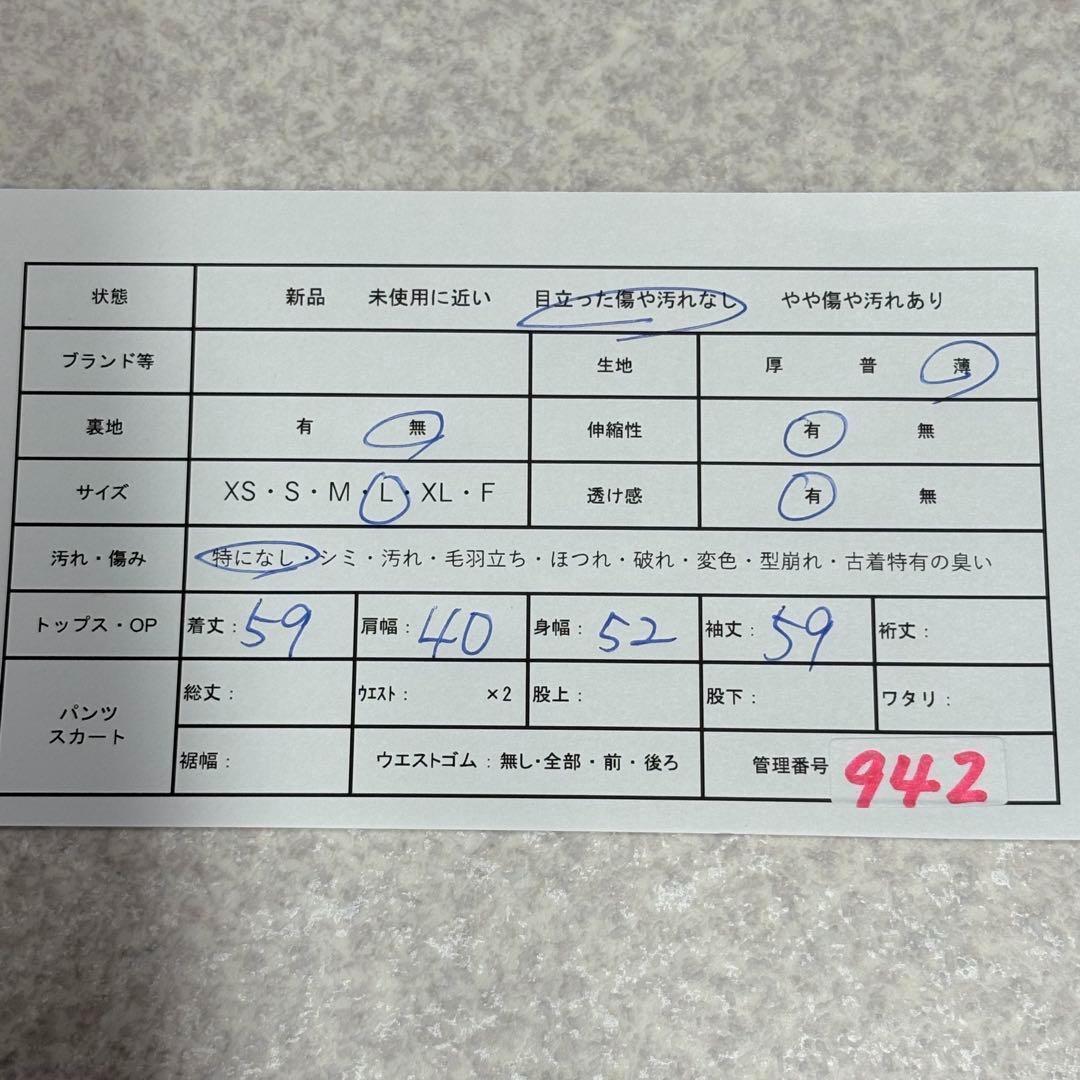 状態 新品 未使用に近い 目立った傷や汚れなし やや傷や汚れあり
ブランド等 生地 厚 普 薄
裏地 有 無 伸縮性 有 無
サイズ XS・S・M・L・XL・F 透け感 有 無
汚れ・傷み 特になし・シミ・汚れ・毛羽立ち・ほつれ・破れ・変色・型崩れ・古着特有の臭い
トップス・OP 着丈：59 肩幅：40 身幅：52 袖丈：59 裄丈：
パンツ
スカート
総丈： ｳｴｽﾄ： ×2 股上： 股下： ワタリ：
裾幅： ウエストゴム：無し・全部・前・後ろ 管理番号 942